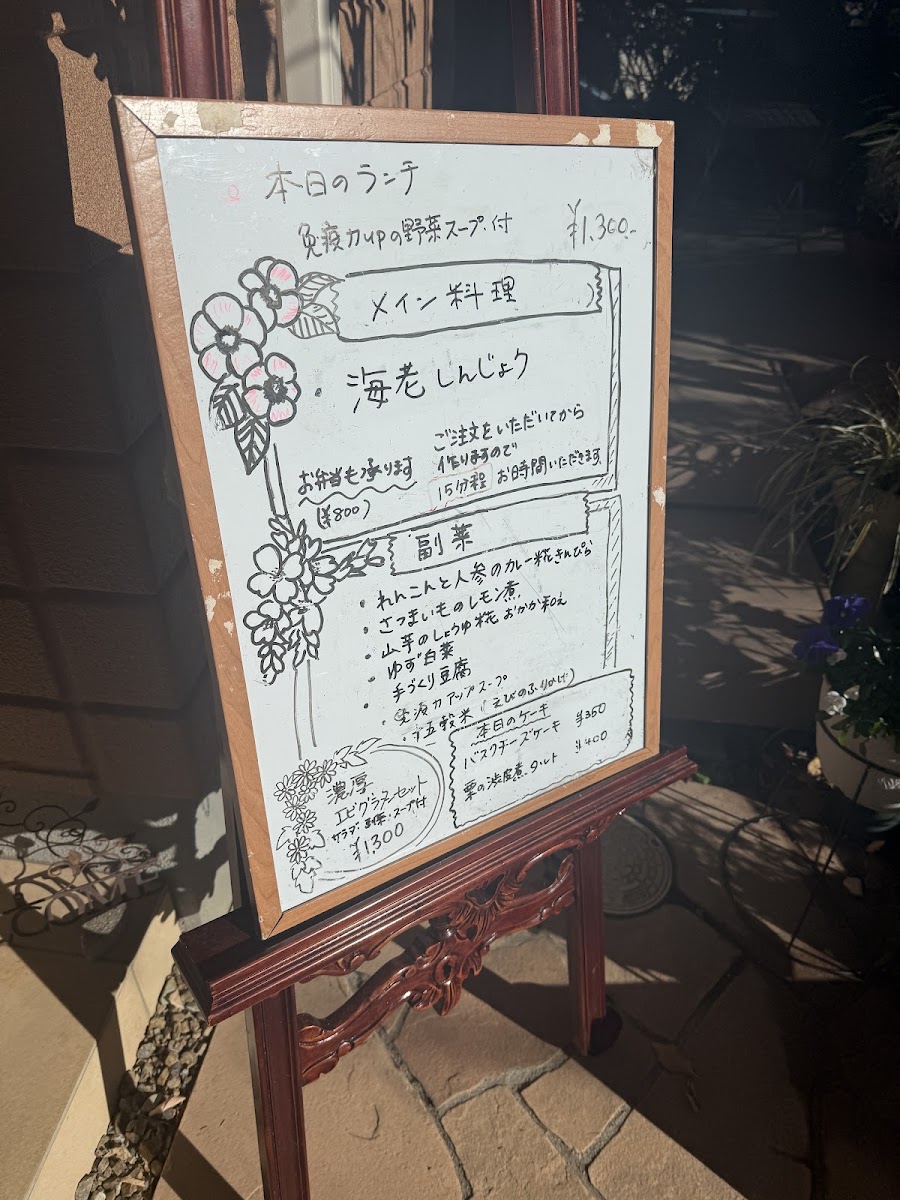 本日のランチ
免疫力upの野菜スープ付
¥1,300-
メイン料理
・海老しんじょう
お弁当も承ります
(¥800)
ご注文をいただいてから
作りますので
15分程 お時間いただきます
副菜
・れんこんと人参のカレー糀きんぴら
・さつまいものレモン煮
・山芋のしょうゆ糀 おかか和え
・ゆず白菜
手づくり豆腐
・免疫力アップスープ
・五穀米 (えびのふりかけ)
本日のケーキ
バスクチーズケーキ ¥350
栗の渋皮煮タルト ¥400
濃厚
エビグラタンセット
サラダ・スープ付
¥1,300
COME